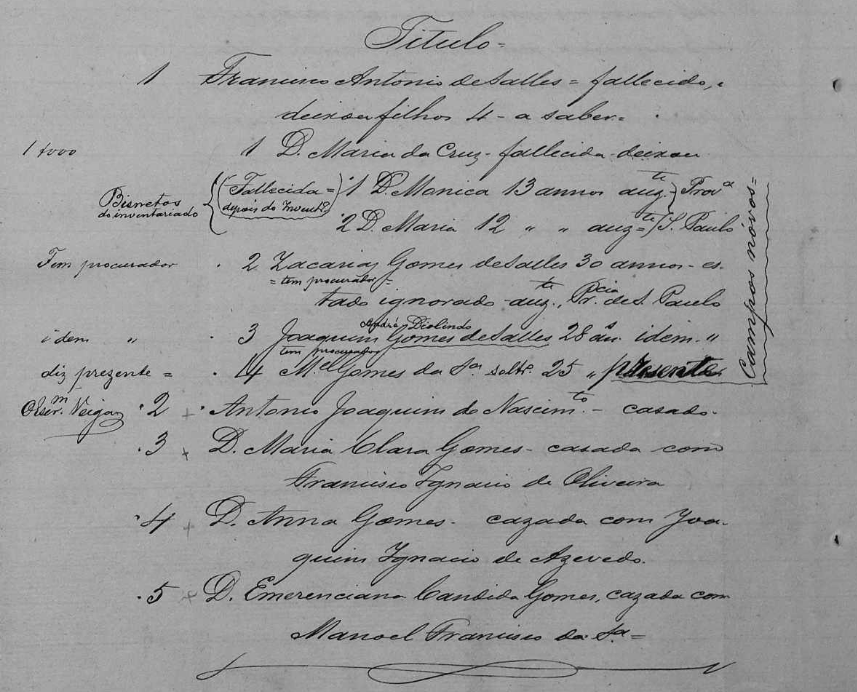 Titulo=
1 Francisco Antonio de Salles = fallecido,
deixou filhos 4 - a saber=
1 D. Maria da Cruz - fallecida - deixou
Bisnetos do inventariado
(Fallecida = depois do Inventº) 1 D. Monica 13 annos auzte } Prova
2 D. Maria 12 " " auzte= / S. Paulo
Tem procurador 2 Zacarias Gomes de Salles 30 annos - es-
= tem procurador =
tado ignorado - auzte, Prcia de S. Paulo
André Diolindo
idem " 3 Joaquim Gomes de Salles 28 an. idem "
tem procurador
diz prezente = 4 Mel Gomes da Sa soltr. 25 " presente
Campos novos=
Veiga 2 Antonio Joaquim do Nascimto - casado.
3 D. Maria Clara Gomes - casada com
Francisco Ignacio de Oliveira
4 D. Anna Gomes - cazada com Joa-
quim Ignacio de Azevedo.
5 D. Emerenciana Candida Gomes, cazada com
Manoel Francisco da Sa=